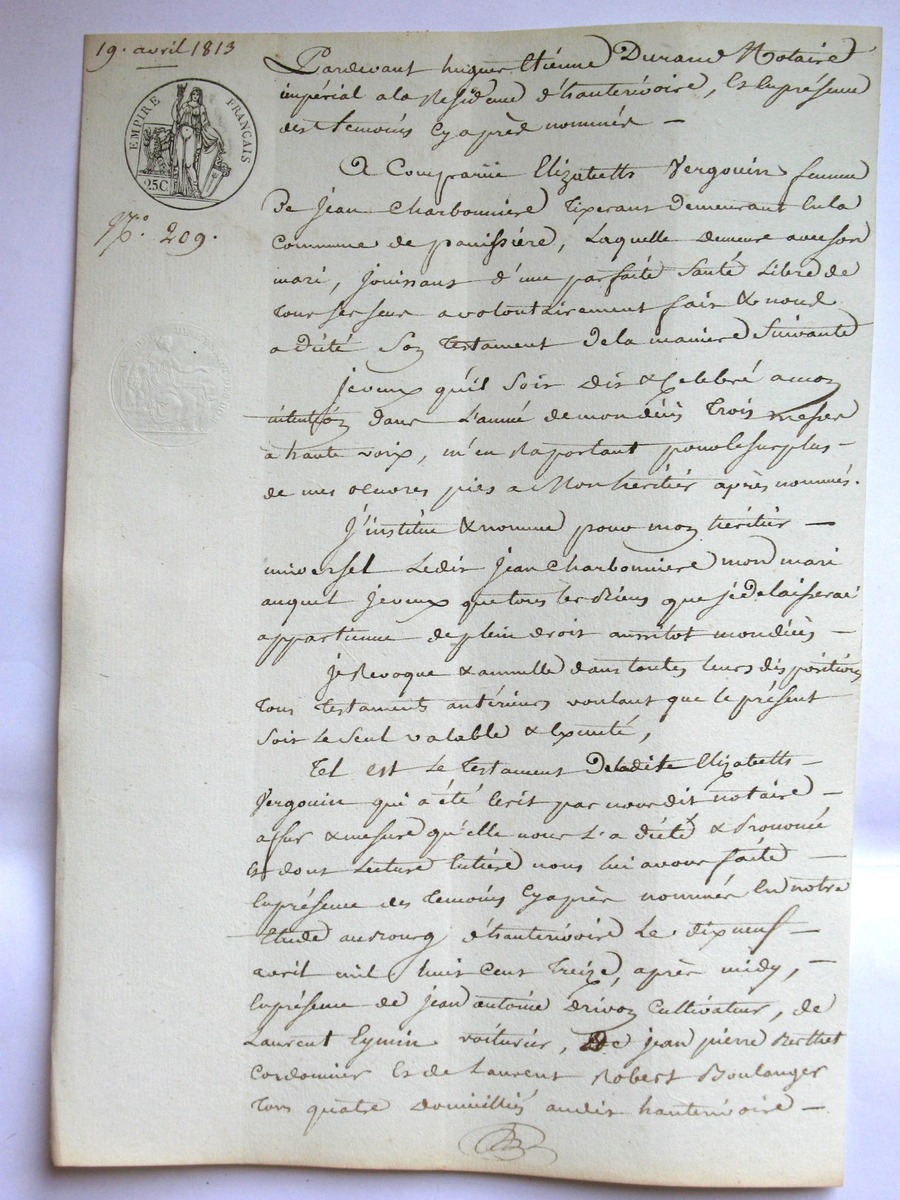 19. avril 1813
EMPIRE FRANÇAIS
25C
N.º 209.
Pardevant hugues Etienne Durand Notaire
impérial a la Residence d'hauterivoire, Et En présence
des temoins Cy après nommés —
A Comparüe Elizabeth Vergouin femme
De Jean Charbonniere Tixerant demeurant En la
Commune de panissiere, Laquelle demeure avec son
mari, Jouissant d'une parfaite Santé Libre de
tous ses sens a volontairement fait & nous
a dicté Son Testament de la maniere Suivante
je veux qu'il Soit dit & Celebré a mon
intention dans L'année de mon décès Trois messes
a haute voix, m'en Raportant pour le surplus —
de mes oeuvres pies a Mon héritier après nommés.
J'institue & nomme pour mon héritier —
universel Ledit Jean Charbonniere mon mari
auquel Je veux que tous les Biens que je delaisserai
appartienne de plein droit aussitot mon décès —
je Revoque & annulle dans toutes leurs dispositions
Tous Testaments antérieurs voulant que le présent
Soit Le Seul valable & Executé,
Tel est Le Testament De ladite Elizabeth —
Vergouin qui a été Ecrit par nous dit notaire —
a fur & mesure qu'elle nous L'a dicté & Prononcé
Et dont Lecture Entière nous lui avons faite —
En présence des Temoins Cy après nommés En notre
Etude au Bourg d'hauterivoire Le dix neuf —
avril mil huit Cent Treize, après midy, —
En présence de Jean antoine Drivon Cultivateur, de
Laurent Eymin voiturier, De jean pierre Berthet
Cordonnier Et de Laurent Robert Boulanger
Tous quatre domicilliés audit hauterivoire —